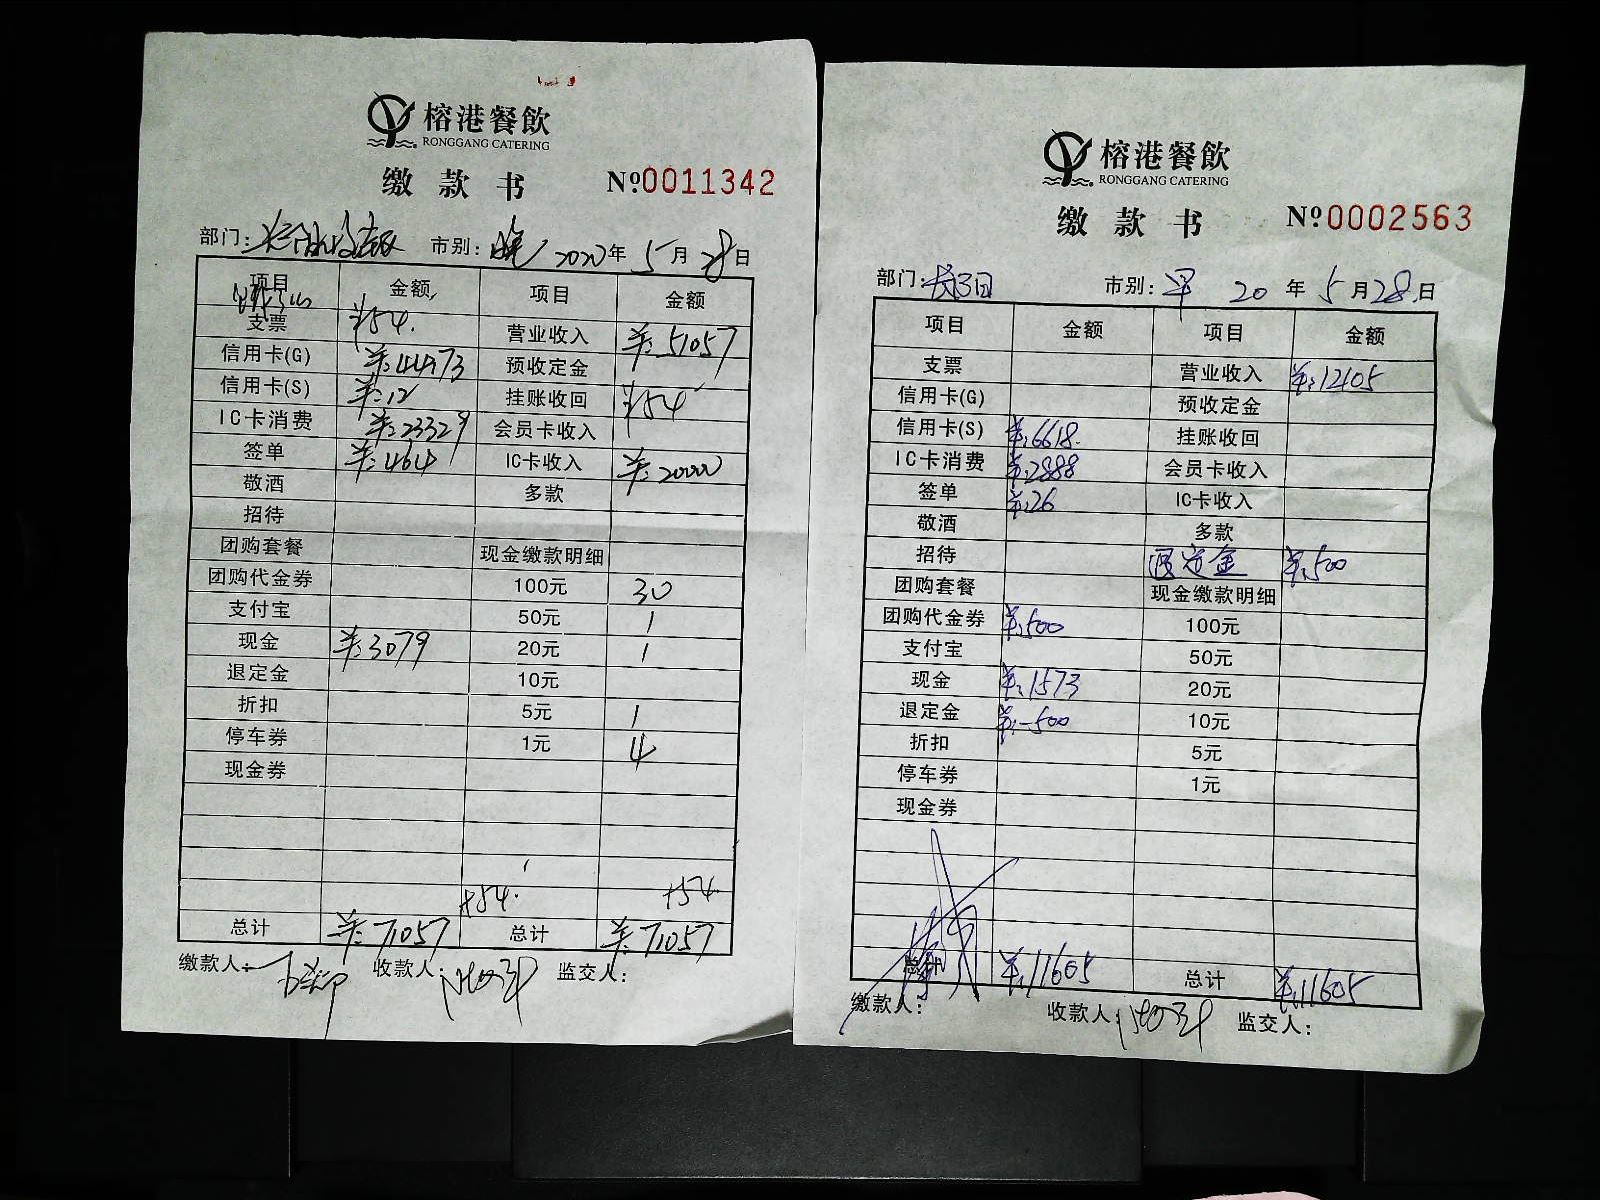 榕港餐飲
RONGGANG CATERING
缴款书 Nº0011342
部门: 市别: 晚 2020年 5月 28日
项目 金额 项目 金额
支票 ¥54. 营业收入 ¥:51057
信用卡(G) ¥:44173 预收定金
信用卡(S) ¥:12 挂账收回 ¥54
IC卡消费 ¥:23329 会员卡收入
签单 ¥:464 IC卡收入 ¥:20000
敬酒 多款
招待
团购套餐 现金缴款明细
团购代金券 100元 30
支付宝 50元 1
现金 ¥:3079 20元 1
退定金 10元
折扣 5元 1
停车券 1元 4
现金券
+54. +54.
总计 ¥:71057 总计 ¥:71057
缴款人: 收款人: 监交人:
榕港餐飲
RONGGANG CATERING
缴款书 Nº0002563
部门: 市别: 早 20 年 5月28日
项目 金额 项目 金额
支票 营业收入 ¥:12105
信用卡(G) 预收定金
信用卡(S) ¥:6618 挂账收回
IC卡消费 ¥:2888 会员卡收入
签单 ¥:26 IC卡收入
敬酒 多款
招待 退定金 ¥:500
团购套餐 现金缴款明细
团购代金券 ¥:500 100元
支付宝 50元
现金 ¥:1573 20元
退定金 ¥:-500 10元
折扣 5元
停车券 1元
现金券
总计 ¥:11605 总计 ¥:11605
缴款人: 收款人: 监交人: